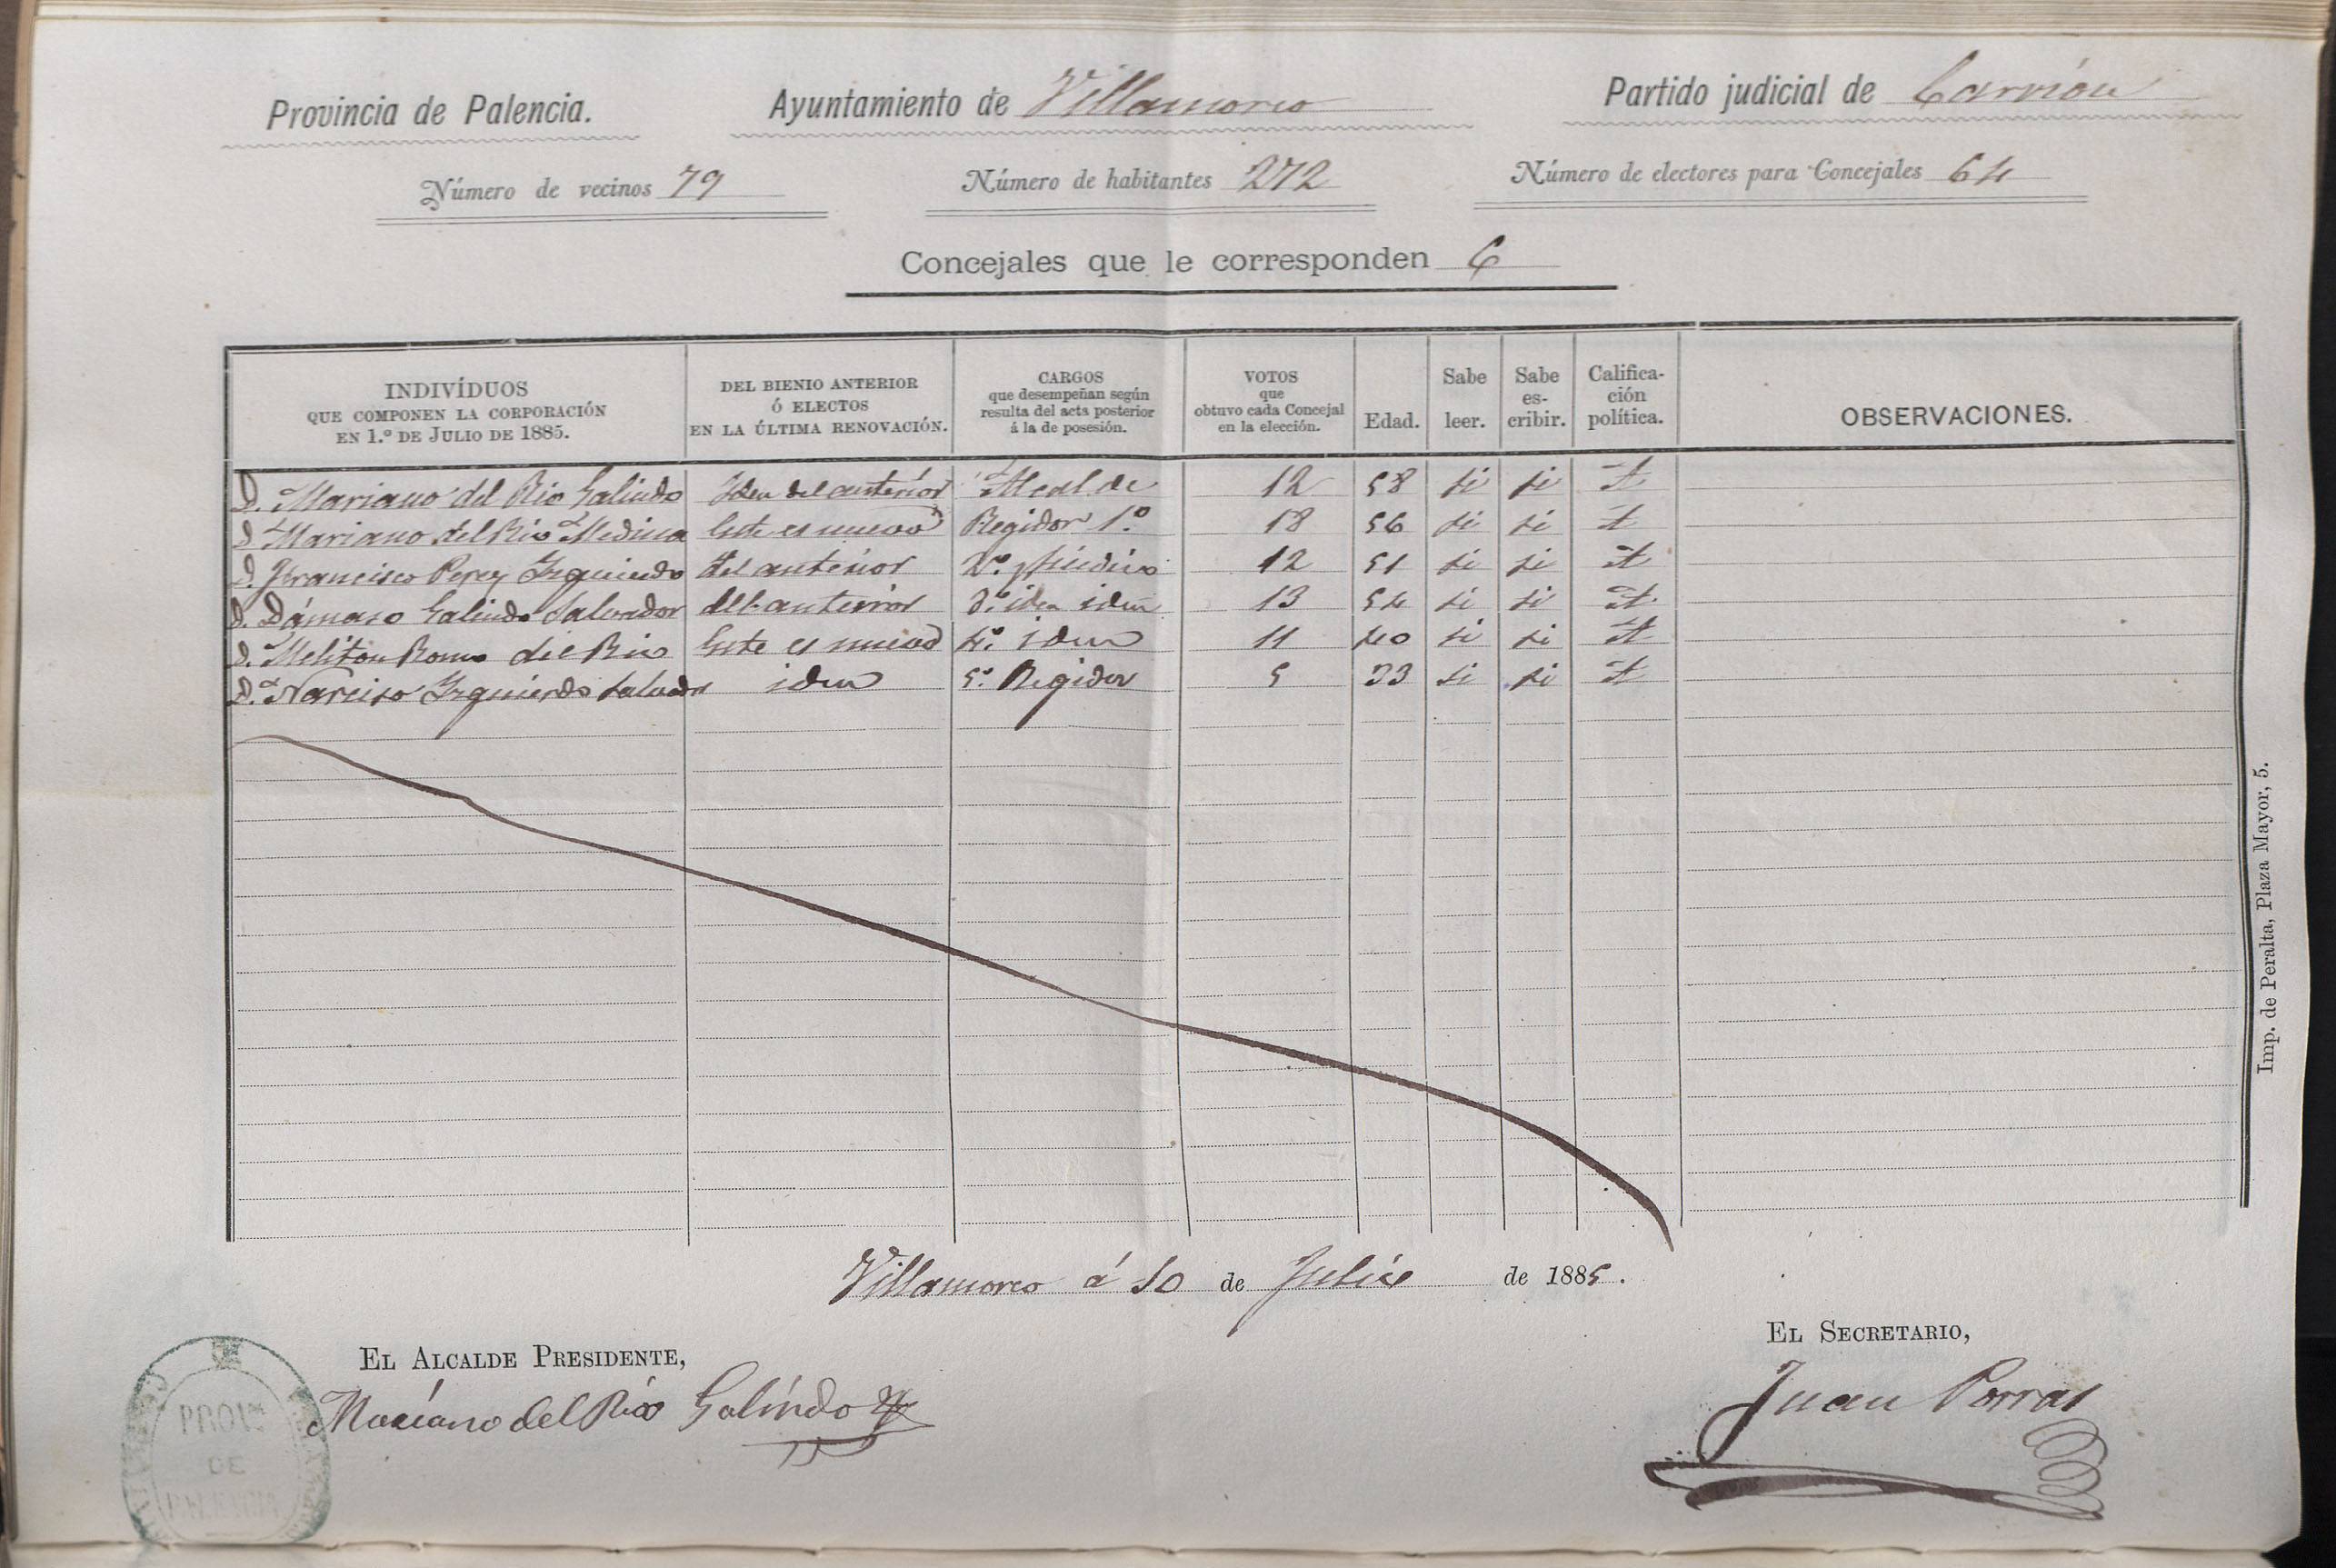 Provincia de Palencia. Ayuntamiento de Villamorco Partido judicial de Carrión
Número de vecinos 79 Número de habitantes 272 Número de electores para Concejales 64
Concejales que le corresponden 6
INDIVÍDUOS QUE COMPONEN LA CORPORACIÓN EN 1.º DE JULIO DE 1885. DEL BIENIO ANTERIOR Ó ELECTOS EN LA ÚLTIMA RENOVACIÓN. CARGOS que desempeñan según resulta del acta posterior á la de posesión. VOTOS que obtuvo cada Concejal en la elección. Edad. Sabe leer. Sabe es-cribir. Califica-ción política. OBSERVACIONES.
D. Mariano del Rio Galindo Iden del anterior Alcalde 12 58 si si
D. Mariano del Rio Medina Este es nuevo Regidor 1.º 18 56 si si
D. Francisco Perez Izquierdo del anterior 2.º y Sindico 12 51 si si
D. Dámaso Galindo Salvador del anterior 3.º iden idem 13 54 si si
D. Meliton Romo del Rio Este es nuevo 4.º idem 11 40 si si
D. Narciso Izquierdo Salvador idem 5.º Regidor 5 33 si si
Imp. de Peralta, Plaza Mayor, 5.
Villamorco á 10 de Julio de 1885.
EL ALCALDE PRESIDENTE, EL SECRETARIO,
Mariano del Río Galíndo Juan Porras
PROV.ᴬᴸ
DE
PALENCIA